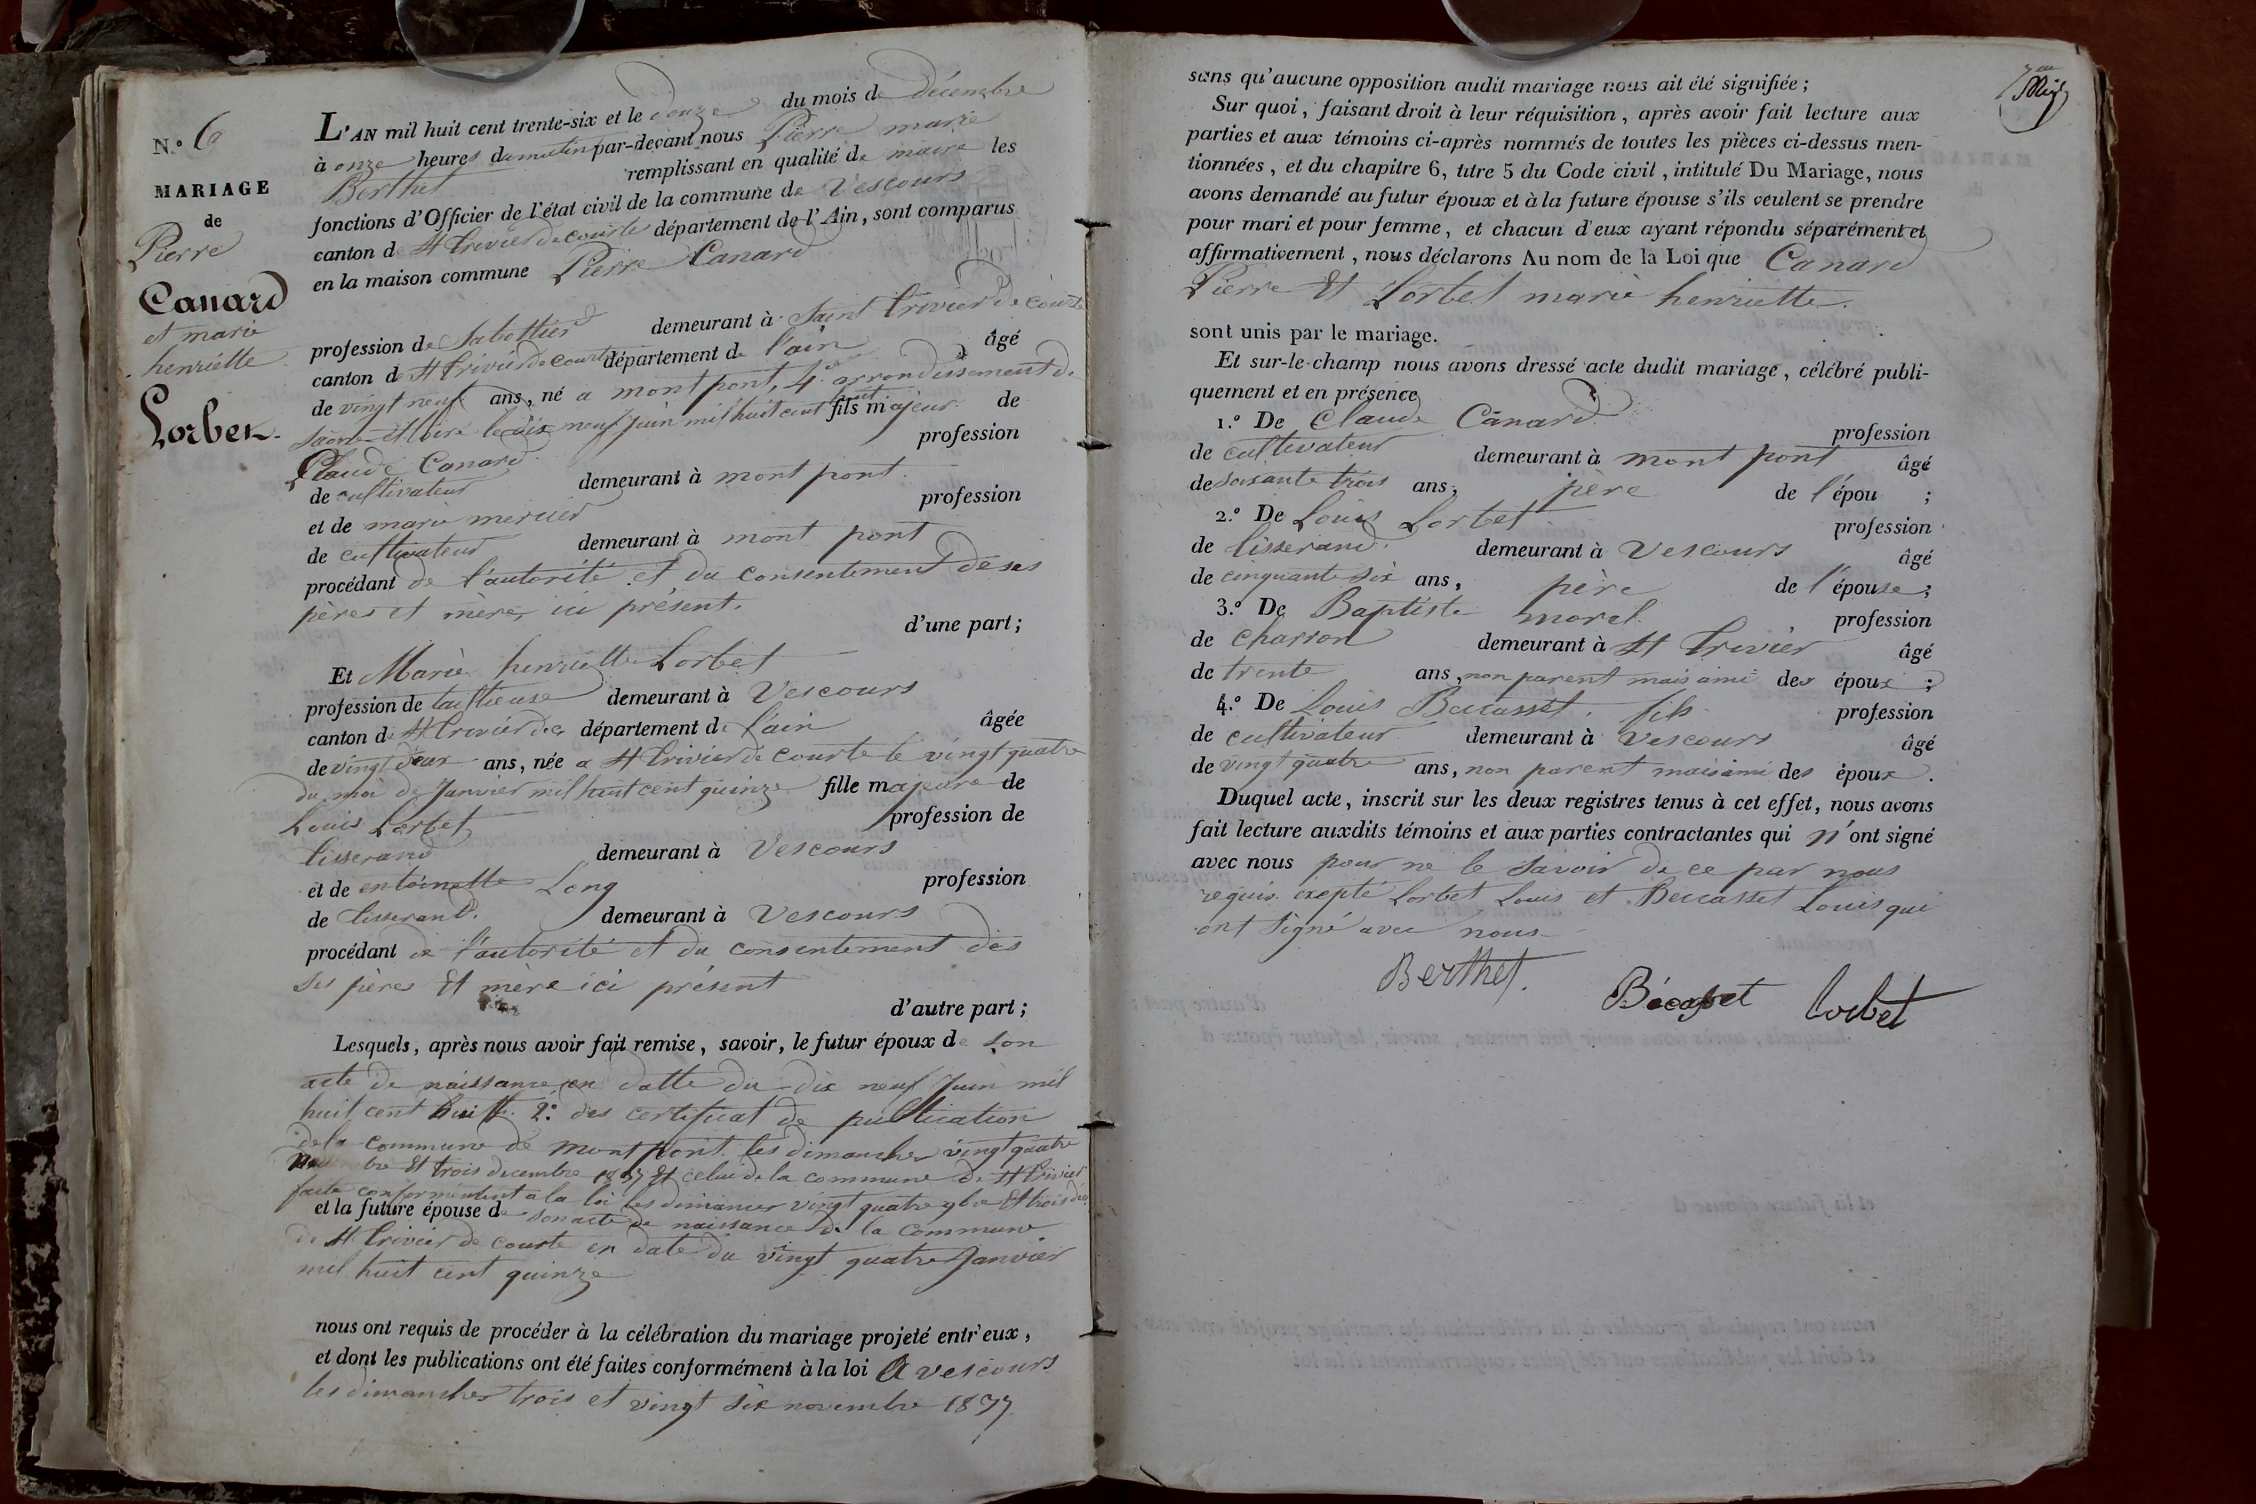 N.º 6
MARIAGE
de
Pierre
Canard
et marie
henriette
Lorbet.
L'AN mil huit cent trente-six et le douze du mois de décembre
à onze heures du matin par-devant nous Pierre marie
Berthet remplissant en qualité de maire les
fonctions d'Officier de l'état civil de la commune de Vescours
canton de St Trivier de courtes département de l'Ain, sont comparus
en la maison commune Pierre Canard
profession de Sabottier demeurant à Saint Trivier de courte
canton de St Trivier de courte département de l'ain âgé
de vingt neuf ans, né a mont pont, 4e arrondissement de
Saone et loire le dix neuf juin mil huit cent huit fils majeur de
Claude Canard profession
de cultivateur demeurant à mont pont.
et de marie mercier profession
de cultivateur demeurant à mont pont
procédant de l'autorité et du consentement de ses
pères et mère, ici présent.
d'une part;
Et Marie henriette Lorbet
profession de tailleuse demeurant à Vescours
canton de St Trivier de c département de l'ain âgée
de vingt deux ans, née a St Trivier de courte le vingt quatre
du moi de Janvier mil huit cent quinze fille majeure de
Louis Lorbet profession de
tisserand demeurant à Vescours
et de entoinette Long profession
de tisserand. demeurant à Vescours
procédant de l'autorité et du consentement des
Ses pères et mère ici présent
d'autre part;
Lesquels, après nous avoir fait remise, savoir, le futur époux de Son
acte de naissance en datte du dix neuf Juin mil
huit cent huit. 2.º des certificat de publication
de la commune de mont pont les dimanches vingt quatre
et trois decembre et celui de la commune de St Trivier
faite conformement a la loi les dimances vingt quatre 9bre et trois
et la future épouse de son acte de naissance de la commune
de St Trivier de courte en date du vingt quatre Janvier
mil huit cent quinze
nous ont requis de procéder à la célébration du mariage projeté entr'eux,
et dont les publications ont été faites conformément à la loi A vescours
les dimanches trois et vingt six novembre 1837
sans qu'aucune opposition audit mariage nous ait été signifiée;
Sur quoi, faisant droit à leur réquisition, après avoir fait lecture aux
parties et aux témoins ci-après nommés de toutes les pièces ci-dessus men-
tionnées, et du chapitre 6, titre 5 du Code civil, intitulé Du Mariage, nous
avons demandé au futur époux et à la future épouse s'ils veulent se prendre
pour mari et pour femme, et chacun d'eux ayant répondu séparément et
affirmativement, nous déclarons Au nom de la Loi que Canard
Pierre Et Lorbet marie henriette.
sont unis par le mariage.
Et sur-le-champ nous avons dressé acte dudit mariage, célébré publi-
quement et en présence
1.º De Claude Canard profession
de cultivateur demeurant à mont pont âgé
de soixante trois ans, père de l'épou ;
2.º De Louis Lorbet profession
de tisserand. demeurant à Vescours âgé
de cinquante six ans, père de l'épouse;
3.º De Baptiste morel. profession
de charron demeurant à St Trivier âgé
de trente ans, non parent mais ami des époux ;
4.º De Louis Becasset. fils profession
de cultivateur demeurant à Vescours âgé
de vingt quatre ans, non parent mais ami des époux.
Duquel acte, inscrit sur les deux registres tenus à cet effet, nous avons
fait lecture auxdits témoins et aux parties contractantes qui n'ont signé
avec nous pour ne le savoir de ce par nous
requis. exepté Lorbet Louis et Beccasset Louis qui
ont Signé avec nous
Berthet. Bécasset Lorbet